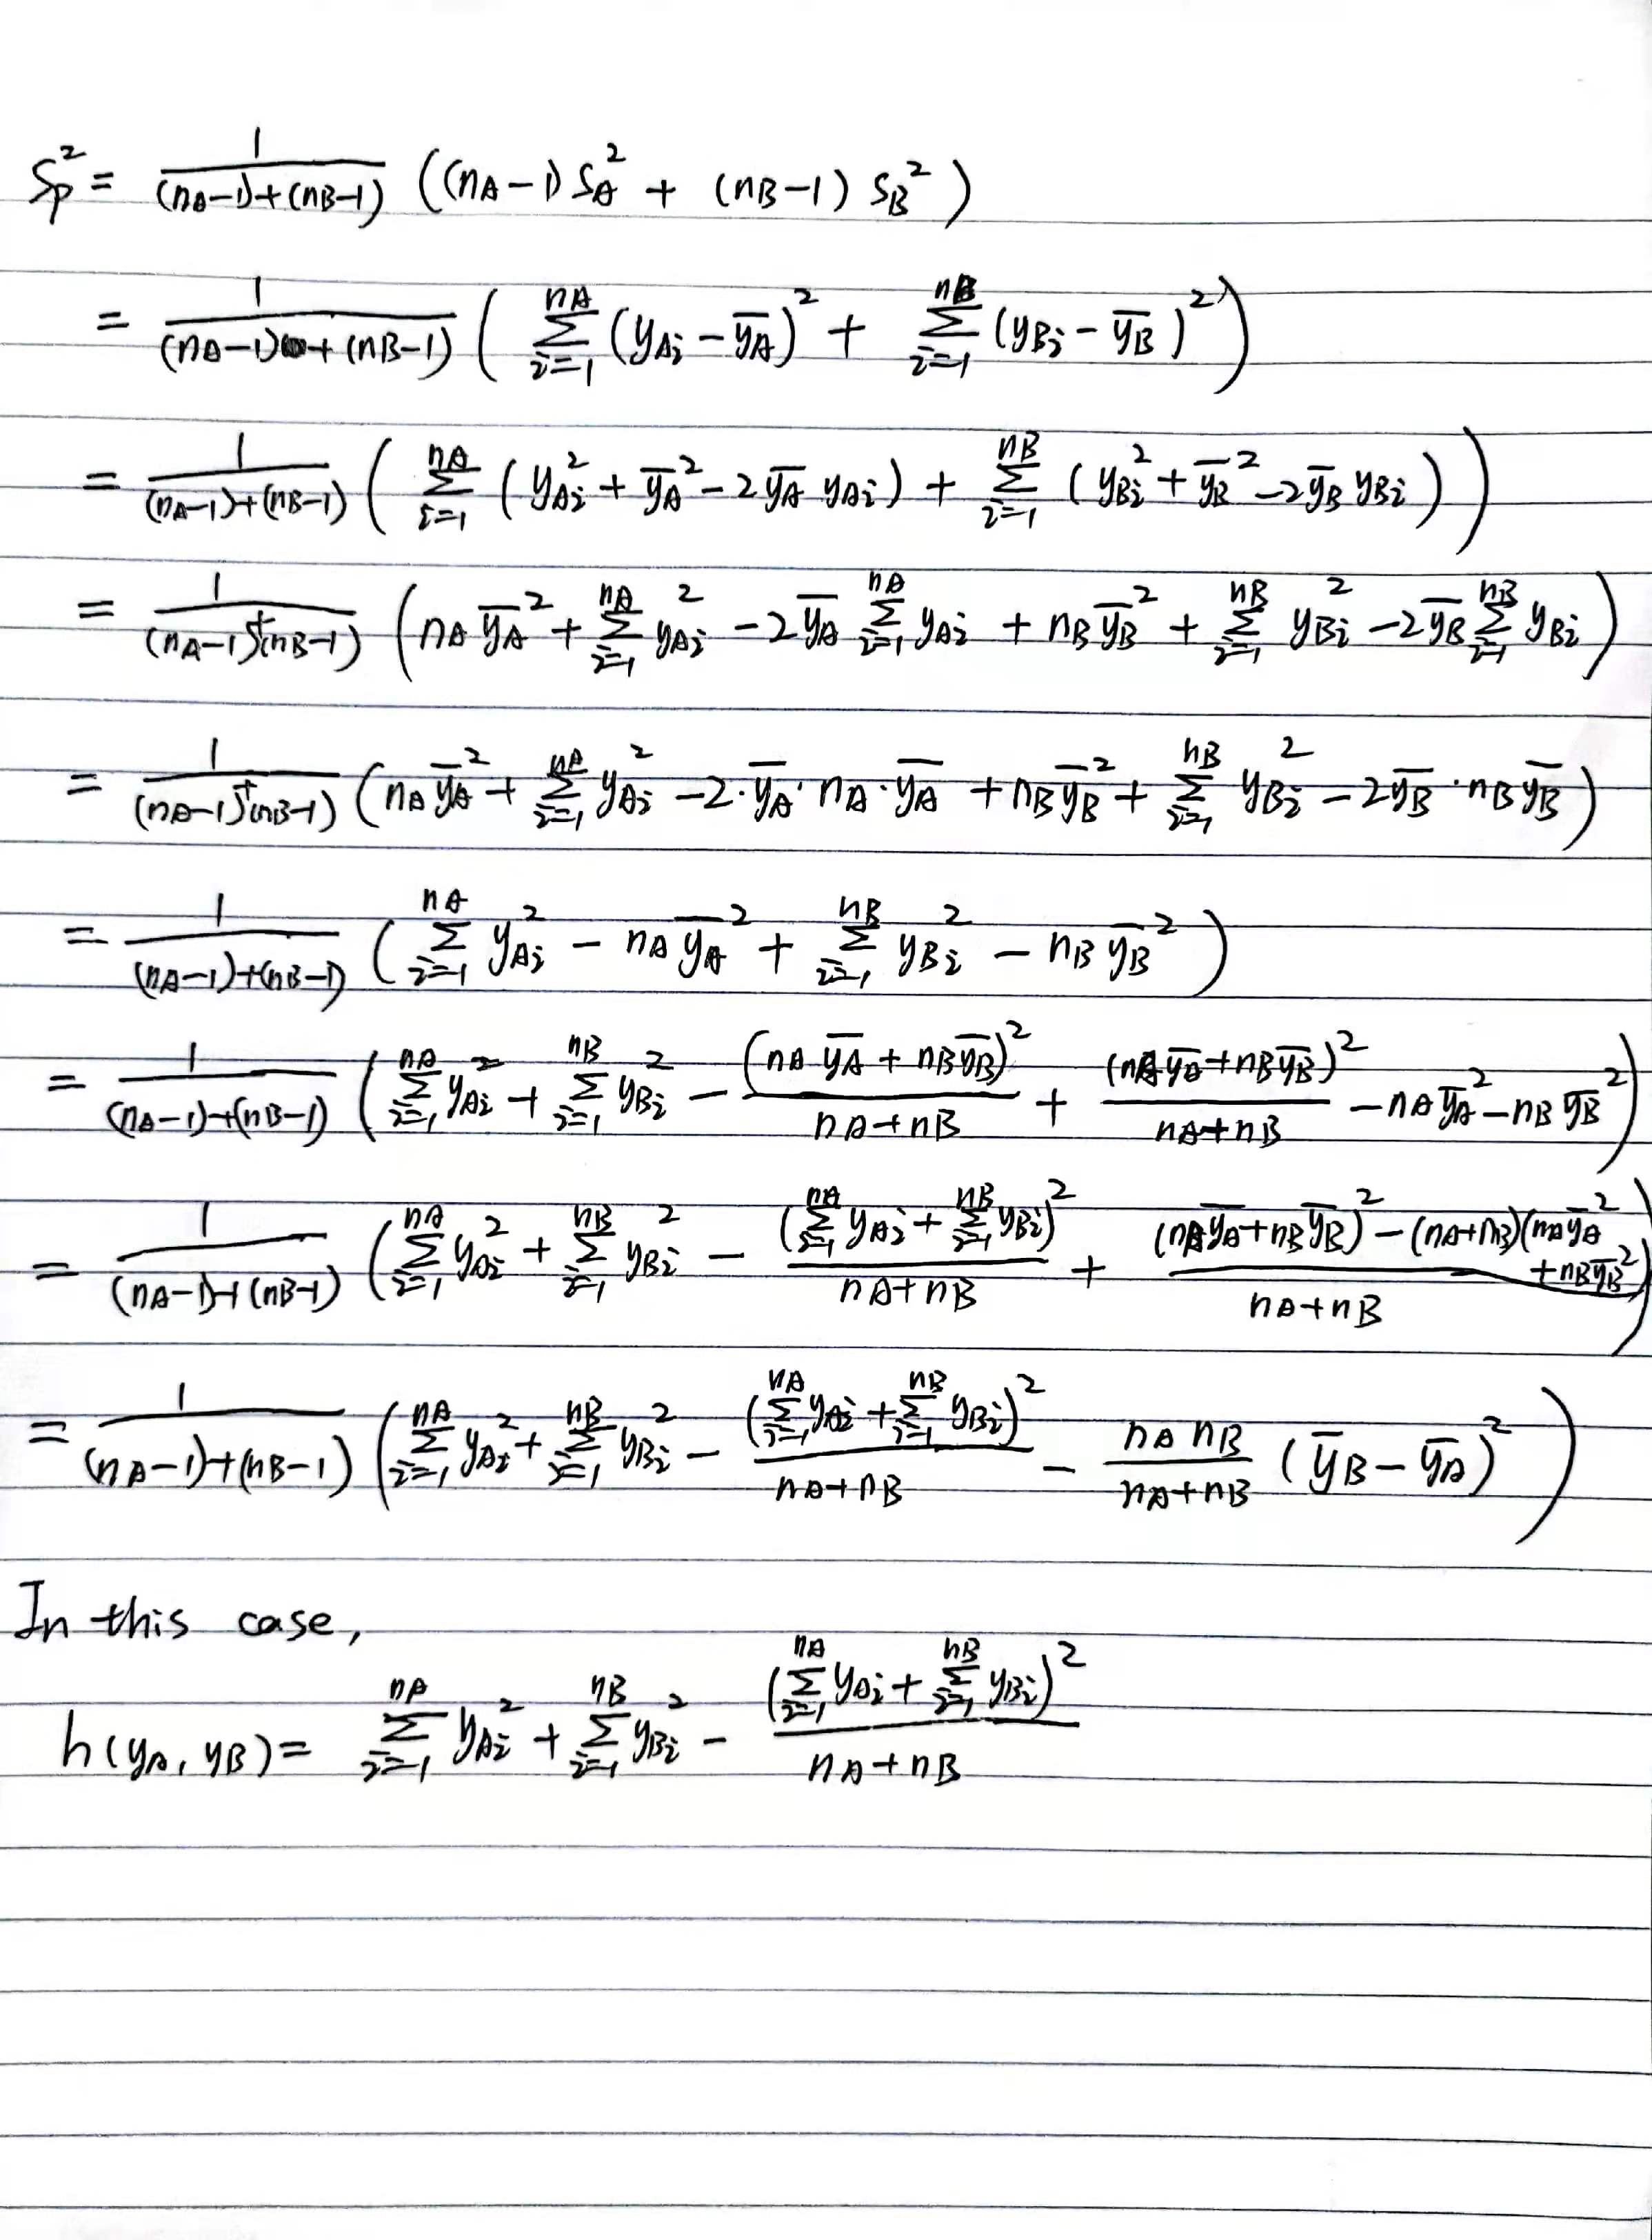 Sp² = 1/((nA−1)+(nB−1)) ((nA−1)SA² + (nB−1)SB²)
= 1/((nA−1)+(nB−1)) (∑_{i=1}^{nA} (yAi − ȳA)² + ∑_{i=1}^{nB} (yBi − ȳB)²)
= 1/((nA−1)+(nB−1)) (∑_{i=1}^{nA} (yAi² + ȳA² − 2ȳA yAi) + ∑_{i=1}^{nB} (yBi² + ȳB² − 2ȳB yBi))
= 1/((nA−1)+(nB−1)) (nA ȳA² + ∑_{i=1}^{nA} yAi² − 2ȳA ∑_{i=1}^{nA} yAi + nB ȳB² + ∑_{i=1}^{nB} yBi² − 2ȳB ∑_{i=1}^{nB} yBi)
= 1/((nA−1)+(nB−1)) (nA ȳA² + ∑_{i=1}^{nA} yAi² − 2·ȳA·nA·ȳA + nB ȳB² + ∑_{i=1}^{nB} yBi² − 2ȳB·nB ȳB)
= 1/((nA−1)+(nB−1)) (∑_{i=1}^{nA} yAi² − nA ȳA² + ∑_{i=1}^{nB} yBi² − nB ȳB²)
= 1/((nA−1)+(nB−1)) (∑_{i=1}^{nA} yAi² + ∑_{i=1}^{nB} yBi² − (nA ȳA + nB ȳB)²/(nA+nB) + (nA ȳA + nB ȳB)²/(nA+nB) − nA ȳA² − nB ȳB²)
= 1/((nA−1)+(nB−1)) (∑_{i=1}^{nA} yAi² + ∑_{i=1}^{nB} yBi² − (∑_{i=1}^{nA} yAi + ∑_{i=1}^{nB} yBi)²/(nA+nB) + ((nA ȳA + nB ȳB)² − (nA+nB)(nA ȳA² + nB ȳB²))/(nA+nB))
= 1/((nA−1)+(nB−1)) (∑_{i=1}^{nA} yAi² + ∑_{i=1}^{nB} yBi² − (∑_{i=1}^{nA} yAi + ∑_{i=1}^{nB} yBi)²/(nA+nB) − nA nB/(nA+nB) (ȳB − ȳA)²)
In this case,
h(yA, yB) = ∑_{i=1}^{nA} yAi² + ∑_{i=1}^{nB} yBi² − (∑_{i=1}^{nA} yAi + ∑_{i=1}^{nB} yBi)²/(nA+nB)